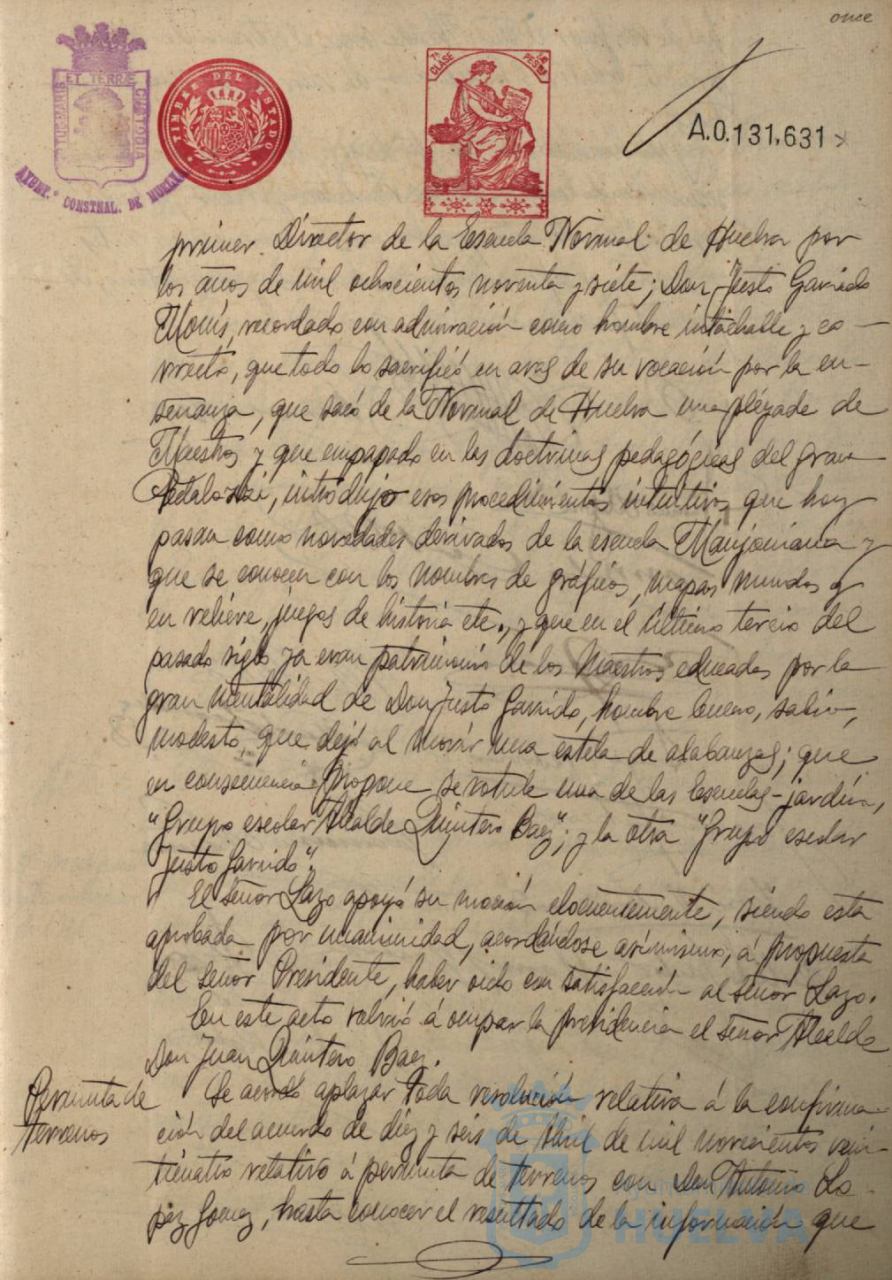 once
PORTUS MARIS ET TERRÆ CUSTODIA
AYUNT.º CONSTNAL. DE HUELVA
TIMBRE DEL ESTADO
7ª CLASE
PESTAS
A.0.131,631
primer Director de la Escuela Normal de Huelva por
los años de mil ochocientos noventa y siete; Don Justo Garrido
Monís, recordado con admiración como hombre intachable y co-
rrecto, que todo lo sacrificó en aras de su vocación por la en-
señanza, que sacó de la Normal de Huelva una pléyade de
Maestros y que empapado en las doctrinas pedagógicas del gran
Petalozzi, introdujo esos procedimientos intuitivos que hoy
pasan como novedades derivados de la escuela Manjoniana y
que se conocen con los nombres de gráficos, mapas mundos y
en relieve, juegos de historia etc., y que en el último tercio del
pasado siglo ya eran patrimonio de los Maestros educados por la
gran mentalidad de Don Justo Garrido, hombre bueno, sabio,
modesto, que dejó al morir una estela de alabanzas; que
en consecuencia propone se rotule una de las Escuelas-jardín,
"Grupo escolar Alcalde Quintero Baez"; y la otra "Grupo escolar
Justo Garrido".
El señor Lazo apoyó su moción elocuentemente, siendo esta
aprobada por unanimidad, acordándose asimismo, á propuesta
del señor Presidente, haber oido con satisfacción al señor Lazo.
En este acto volvió á ocupar la presidencia el señor Alcalde
Don Juan Quintero Baez.
Permuta de
terrenos
Se acordó aplazar toda resolución relativa á la confirma-
ción del acuerdo de diez y seis de Abril de mil novecientos vein-
ticuatro relativo á permuta de terrenos con Don Antonio Lo-
pez Gomez, hasta conocer el resultado de la información que
HUELVA